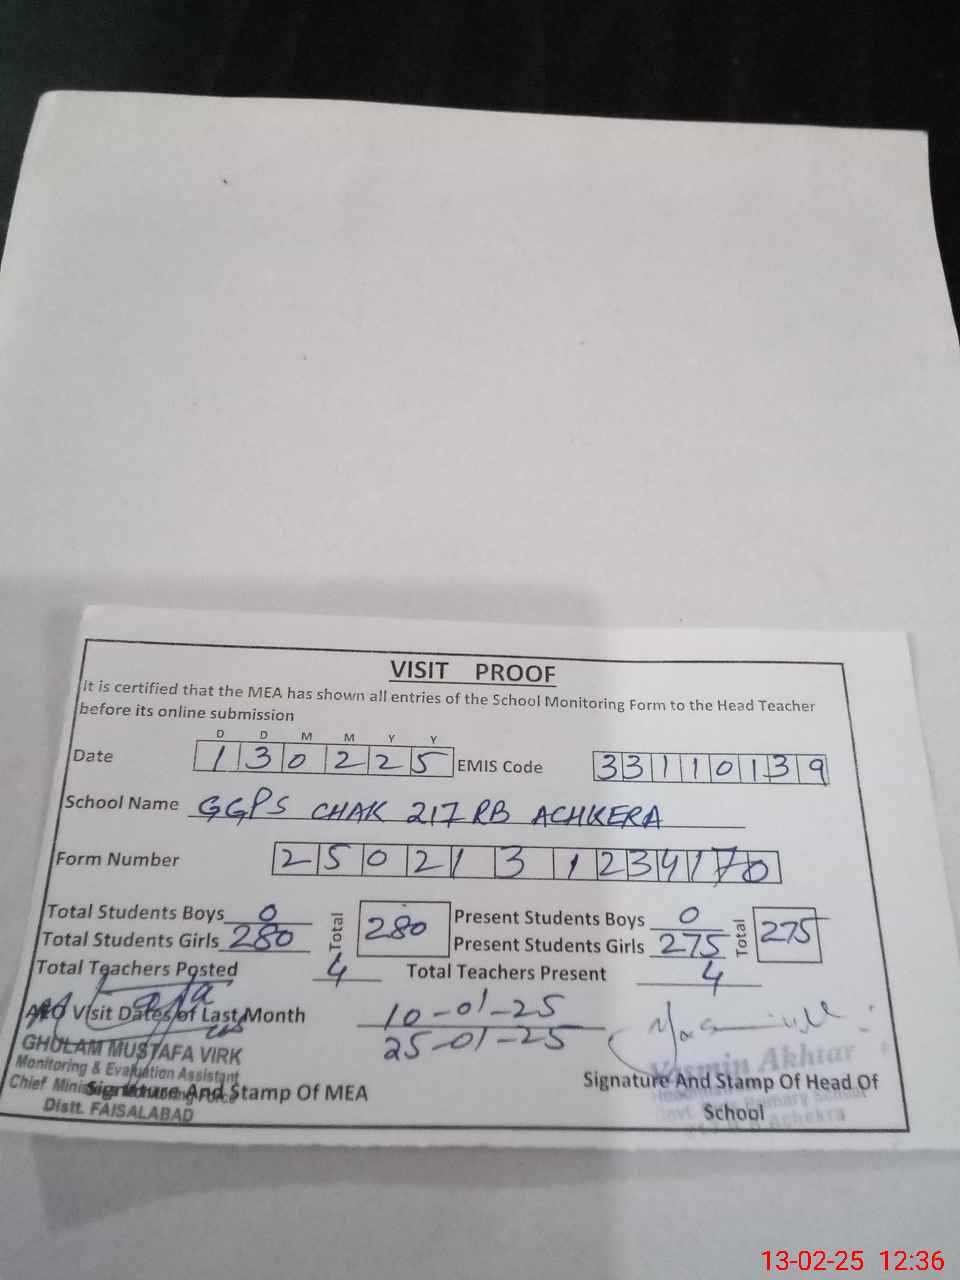 VISIT PROOF
It is certified that the MEA has shown all entries of the School Monitoring Form to the Head Teacher
before its online submission
D D M M Y Y
Date 1 3 0 2 2 5 EMIS Code 3 3 1 1 0 1 3 9
School Name GGPS CHAK 217 RB ACHKERA
Form Number 2 5 0 2 1 3 1 2 3 4 1 7 0
Total Students Boys 0 Total 280 Present Students Boys 0 Total 275
Total Students Girls 280 Present Students Girls 275
Total Teachers Posted 4 Total Teachers Present 4
AEO Visit Dates of Last Month 10-01-25
25-01-25
GHULAM MUSTAFA VIRK
Monitoring & Evaluation Assistant
Chief Minister Monitoring Force
Distt. FAISALABAD
Signature And Stamp Of MEA
Yasmin Akhtar
Primary School
Achkera
Signature And Stamp Of Head Of
School
13-02-25 12:36